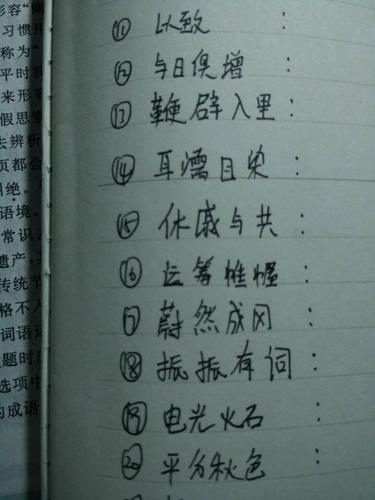 形容
习惯
称为“
平时
来形容
假思索
去辨析
页都会
绝。
语境。
常识
遗产，
传统节
格不入
词语运
题时
选项中
的成语
⑪ 以致 :
⑫ 与日俱增 :
⑬ 鞭辟入里 :
⑭ 耳濡目染 :
⑮ 休戚与共 :
⑯ 运筹帷幄 :
⑰ 蔚然成风 :
⑱ 振振有词 :
⑲ 电光火石 :
⑳ 平分秋色 :